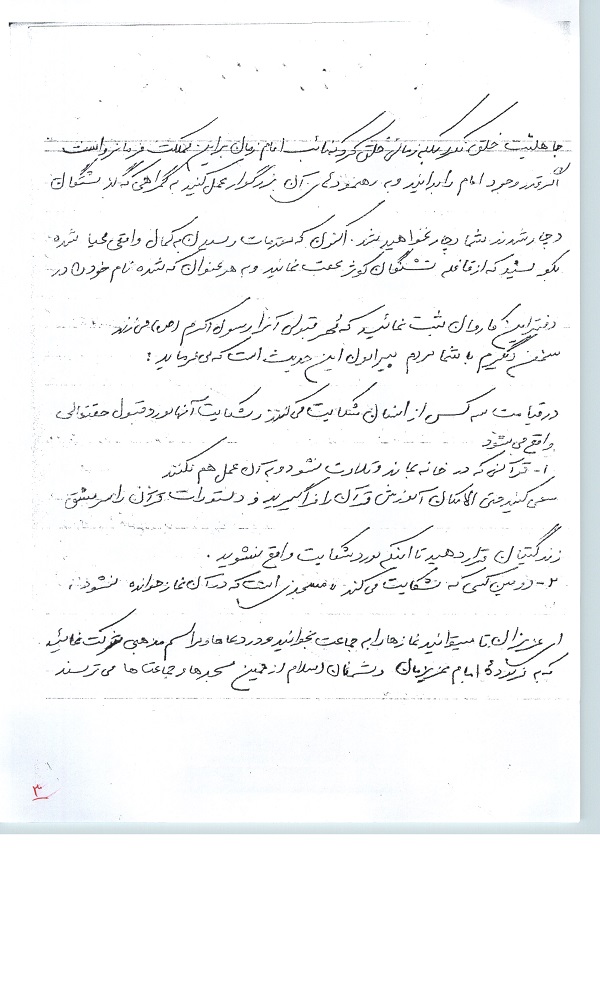 جاهلیت خلق نکرد بلکه زمانی خلق کرد که نائب امام زمان بر این مملکت فرمانرواست
اگر قدر وجود امام را بدانید و به رهنمودهای آن بزرگوار عمل کنید به گمراهی که گذشتگان
دچار شدند شما دچار نخواهید شد. اکنون که مقدمات رسیدن به کمال واقعی محیا شده
بکوشید که از قافله تشنگان کوثر عقب نمانید و به هر عنوان که شده نام خود را در
دفتر این کاروان ثبت نمائید که مهر قبولی آنرا رسول اکرم (ص) می زند
سخن دیگرم با شما مردم پیرامون این حدیث است که می فرماید:
در قیامت سه کس از انسان شکایت می کنند و شکایت آنها مورد قبول حقتعالی
واقع می شود
۱- قرآنی که در خانه بماند و تلاوت نشود و به آن عمل هم نکنند
سعی کنید حتی الامکان آموزش قرآن را فرا گیرید و دستورات قرآن را سرمشق
زندگیتان قرار دهید تا اینکه مورد شکایت واقع نشوید.
۲- دومین کسی که شکایت می کند مسجدی است که در آن نماز خوانده نشود،
ای عزیزان تا میتوانید نمازها را به جماعت بخوانید و در دعاها و مراسم مذهبی شرکت نمائید
که به فرموده امام عزیزمان دشمنان اسلام از همین مسجدها و جماعت ها می ترسند
۳